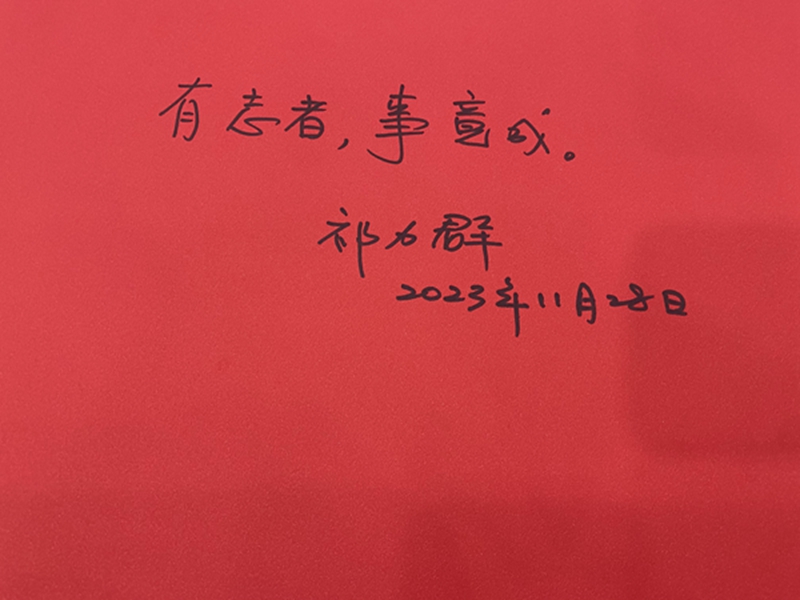 有志者，事竟成。
祁力群
2023年11月28日